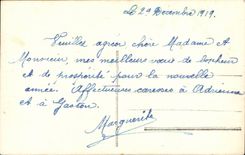 Le 29 Décembre 1919.
Veuillez agréer chère Madame et
Monsieur, mes meilleurs vœux de bonheur
et de prospérité pour la nouvelle
année. Affectueuses caresses à Adrienne
et à Gaston.
Marguerite